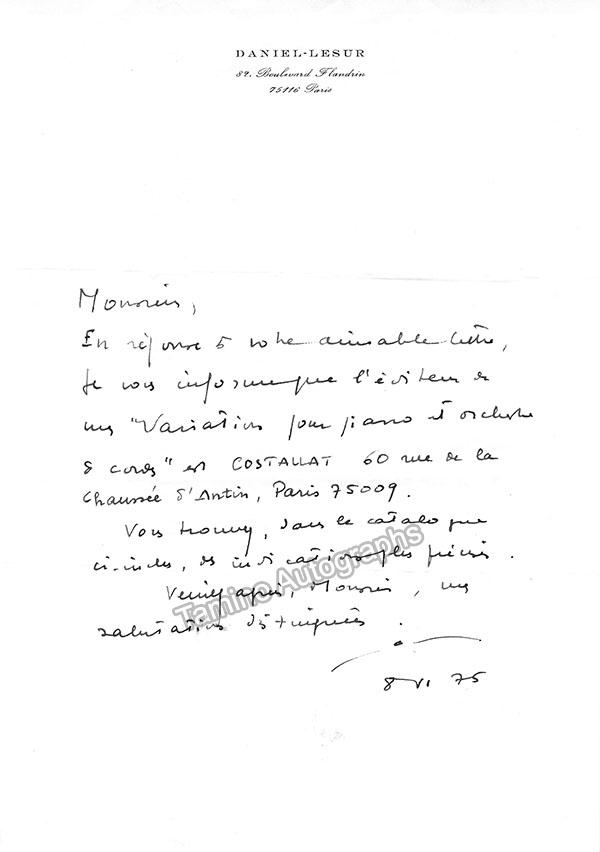 DANIEL-LESUR
82, Boulevard Flandrin
75116 Paris
Monsieur,
En réponse à votre aimable lettre,
je vous informe que l'éditeur de
mes "Variations pour piano et orchestre
à cordes" est COSTALLAT 60 rue de la
Chaussée d'Antin, Paris 75009.
Vous trouverez, dans le catalogue
ci-inclus, des indications plus précises.
Veuillez agréer, Monsieur, mes
salutations distinguées.
8 VI 75
Tamino Autographs